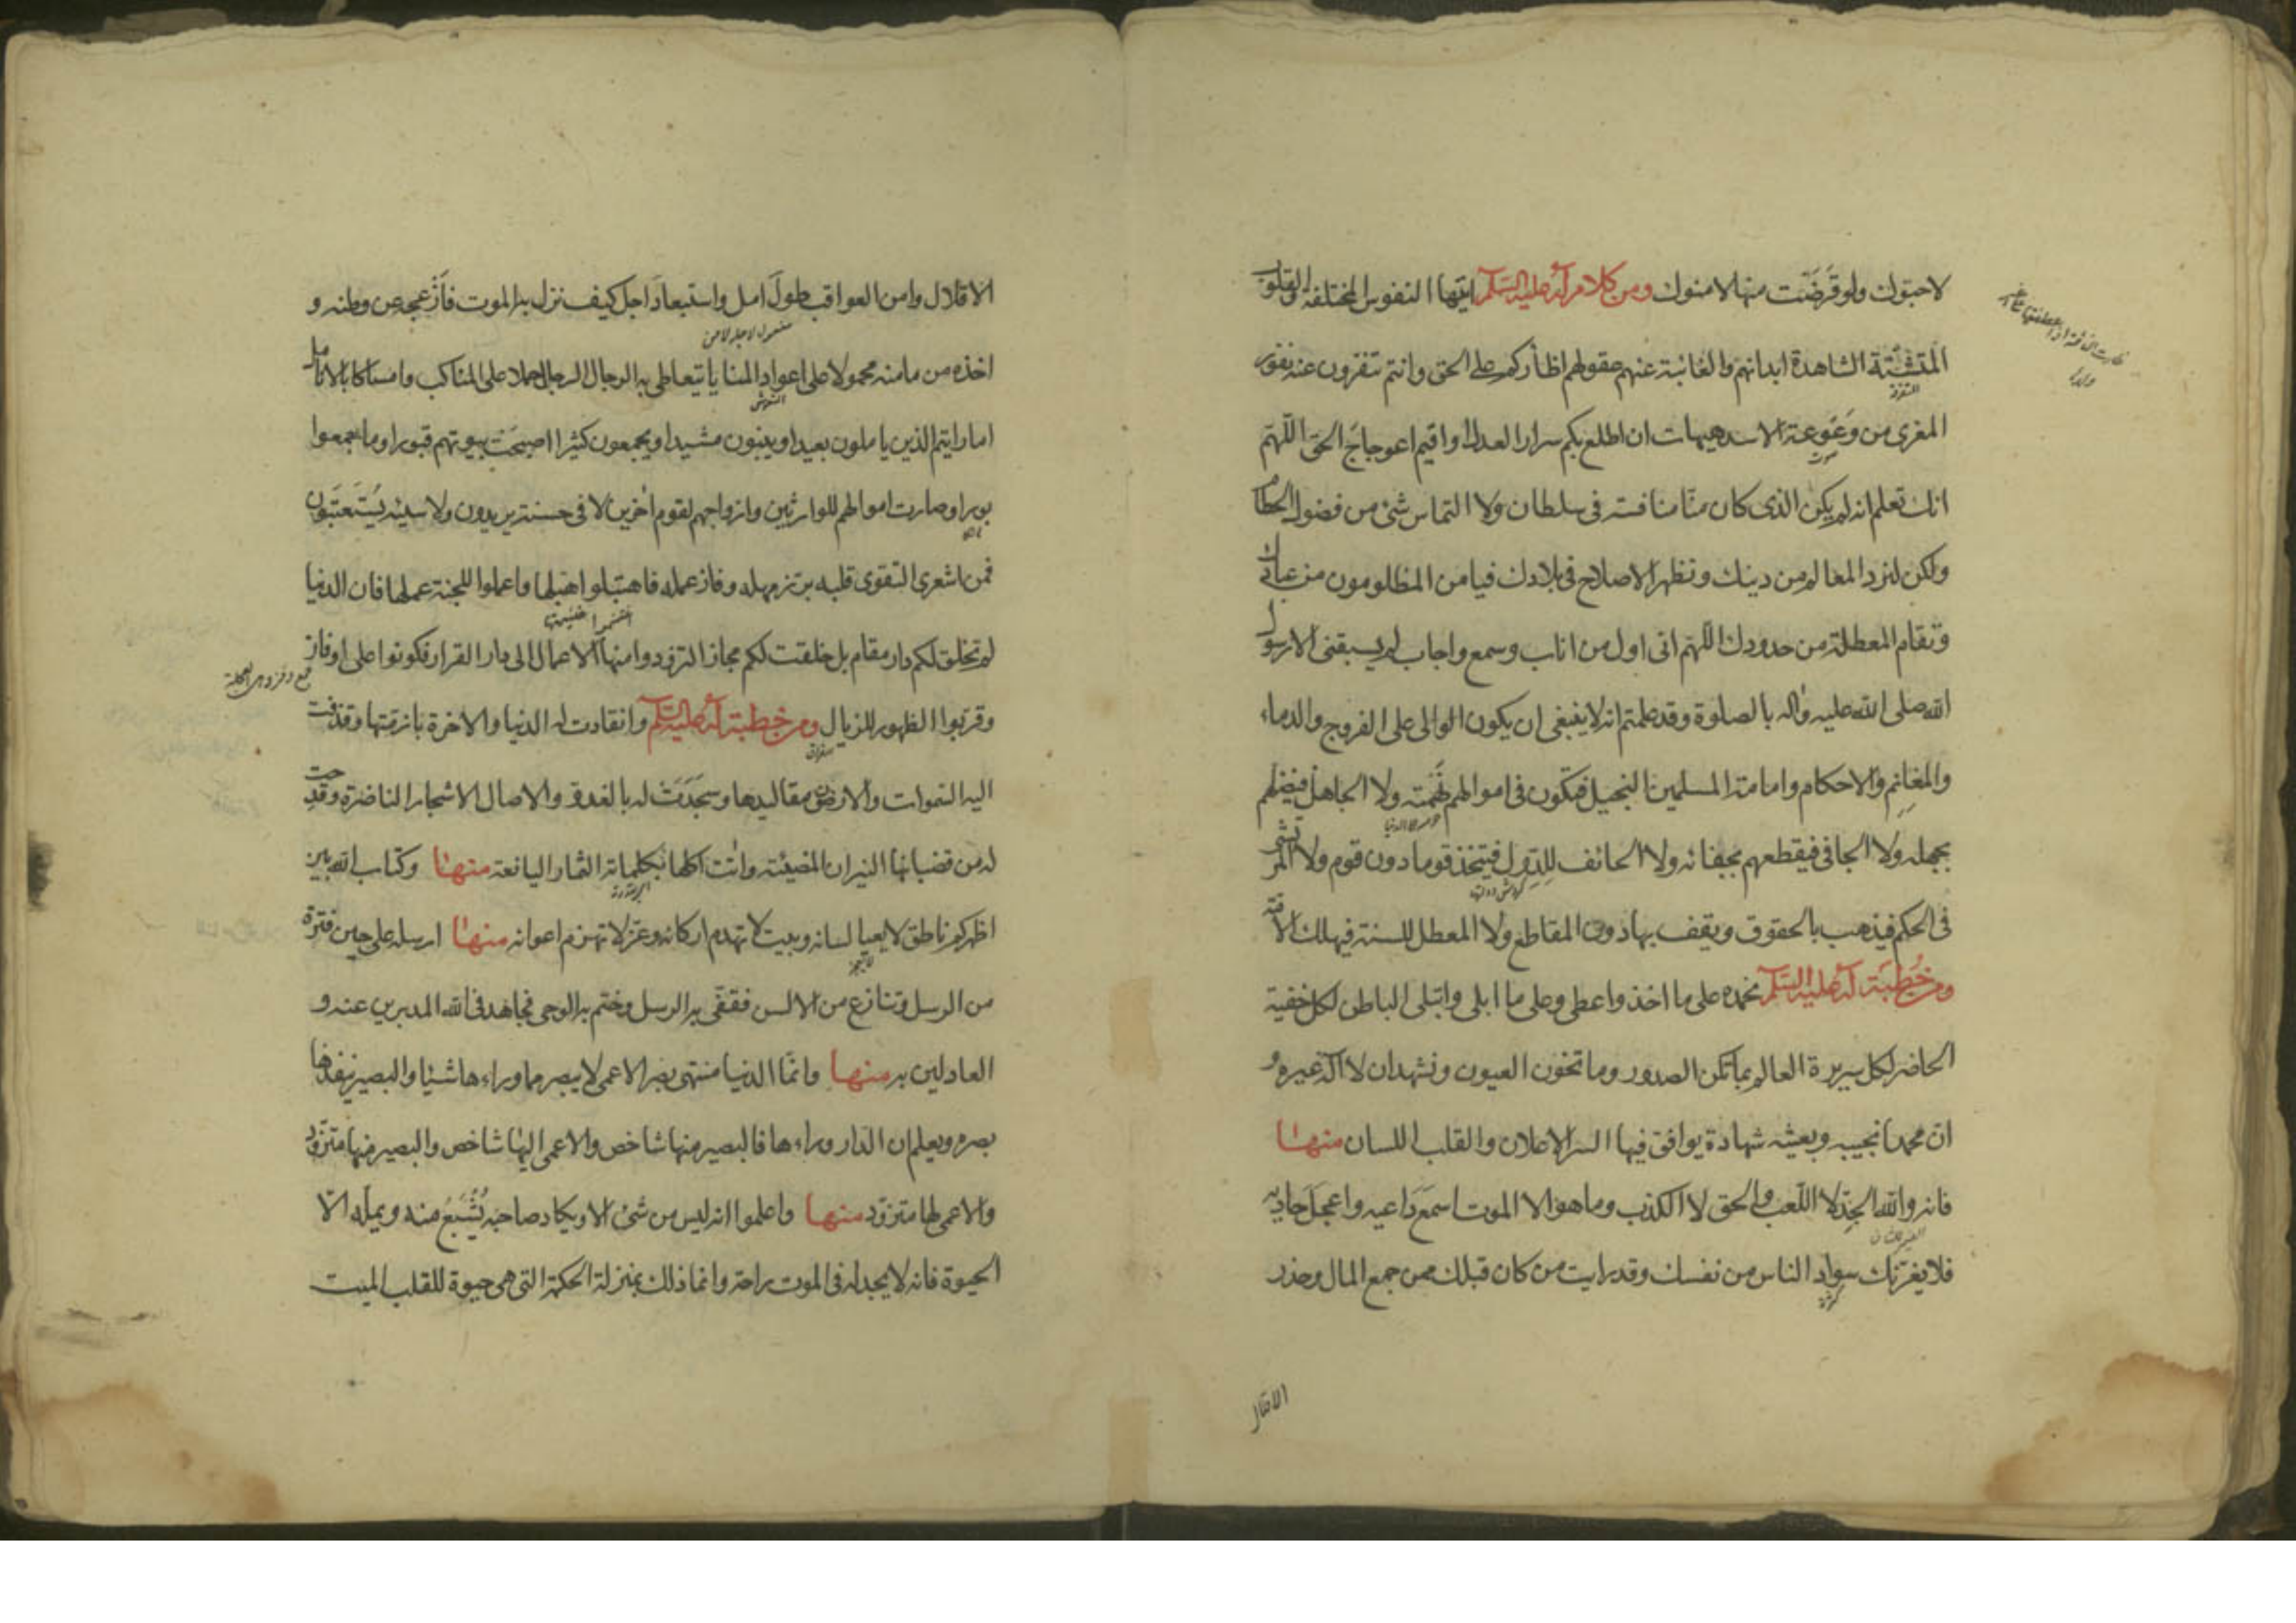 لاحبوك ولو قرضت منها لامنوك ومن كلام له عليه السلام ايتها النفوس المختلفة والقلوب
المتشتتة الشاهدة ابدانهم والغائبة عنهم عقولهم اظأركم على الحق وانتم تنفرون عنه نفور
المعزى من وعوعة الاسد هيهات ان اطلع بكم سرار العدل او اقيم اعوجاج الحق اللهم
انك تعلم انه لم يكن الذى كان منا منافسة فى سلطان ولا التماس شئ من فضول الحطام
ولكن لنرد المعالم من دينك ونظهر الاصلاح فى بلادك فيامن المظلومون من عبادك
وتقام المعطلة من حدودك اللهم انى اول من اناب وسمع واجاب لم يسبقنى الا رسول
الله صلى الله عليه واله بالصلوة وقد علمتم انه لا ينبغى ان يكون الوالى على الفروج والدماء
والمغانم والاحكام وامامة المسلمين البخيل فتكون فى اموالهم نهمته ولا الجاهل فيضلهم
حرص الدنيا
بجهله ولا الجافى فيقطعهم بجفائه ولا الحائف للدول فيتخذ قوما دون قوم ولا المرتشى
فى الحكم فيذهب بالحقوق ويقف بها دون المقاطع ولا المعطل للسنة فيهلك الامة
ومن خطبة له عليه السلام نحمده على ما اخذ واعطى وعلى ما ابلى وابتلى الباطن لكل خفية
الحاضر لكل سريرة العالم بما تكن الصدور وما تخون العيون ونشهد ان لا اله غيره و
ان محمدا نجيبه وبعيثه شهادة يوافق فيها السر الاعلان والقلب اللسان منها
فانه والله الجد لا اللعب والحق لا الكذب وما هو الا الموت اسمع داعيه واعجل حاديه
فلا يغرنك سواد الناس من نفسك وقد رايت من كان قبلك ممن جمع المال وحذر
كثرة
الاقلال
الاقلال وامن العواقب طول امل واستبعاد اجل كيف نزل به الموت فازعجه عن وطنه و
مفعول لاجله لامن
اخذه من مامنه محمولا على اعواد المنايا يتعاطى به الرجال الرجال حملا على المناكب وامساكا بالانامل
النعش
اما رايتم الذين ياملون بعيدا ويبنون مشيدا ويجمعون كثيرا اصبحت بيوتهم قبورا وما جمعوا
بورا وصارت اموالهم للوارثين وازواجهم لقوم اخرين لا فى حسنة يزيدون ولا سيئة يستعتبون
فمن اشعرى التقوى قلبه برز مهله وفاز عمله فاهتبلوا هبلها واعملوا للجنة عملها فان الدنيا
لم تخلق لكم دار مقام بل خلقت لكم مجازا لتزودوا منها الاعمال الى دار القرار فكونوا على اوفاز
وقربوا الظهور للزيال ومن خطبة له عليه السلم وانقادت له الدنيا والاخرة بازمتها وقذفت
اليه السموات والارضون مقاليدها وسجدت له بالغدو والاصال الاشجار الناضرة وقدحت
له من قضبانها النيران المضيئة واتت اكلها بكلماته الثمار اليانعة منها وكتاب الله بين
اظهركم ناطق لا يعيا لسانه وبيت لا تهدم اركانه وعز لا تهزم اعوانه منها ارسله على حين فترة
من الرسل وتنازع من الالسن فقفى به الرسل وختم به الوحى فجاهد فى الله المدبرين عنه و
العادلين به منها وانما الدنيا منتهى بصر الاعمى لا يبصر مما وراءها شيئا والبصير ينفذها
بصره ويعلم ان الدار وراءها فالبصير منها شاخص والاعمى اليها شاخص والبصير منها متزود
والاعمى لها متزود منها واعلموا انه ليس من شئ الا ويكاد صاحبه يشبع منه ويمله الا
الحيوة فانه لا يجد له فى الموت راحة وانما ذلك بمنزلة الحكمة التى هى حيوة للقلب الميت